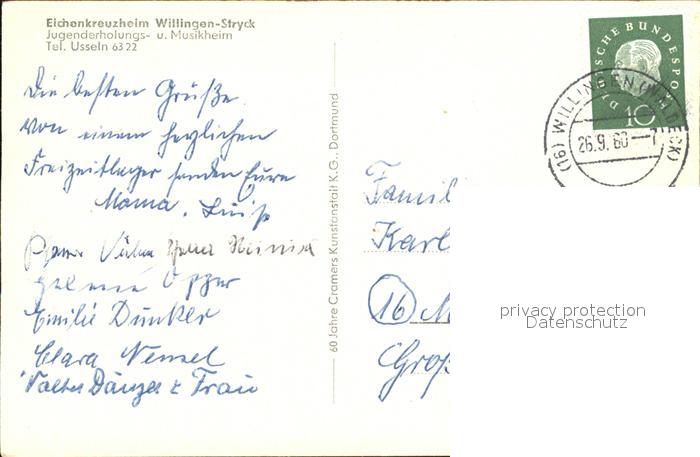 Eichenkreuzheim Willingen-Stryck
Jugenderholungs- u. Musikheim
Tel. Usseln 63 22
Die besten Grüße
von einem herzlichen
Freizeitlager senden Eure
Mama, Luise
Pfarrer
Helene Opper
Emilie Dunker
Clara Wensel
Walter Dänzer & Frau
60 Jahre Cramers Kunstanstalt K.G., Dortmund
DIE BUNDESPO
10
(16) WILLINGEN (WALDECK)
26.9.60--7
Famil
Karl
(16) M
Groß
privacy protection
Datenschutz